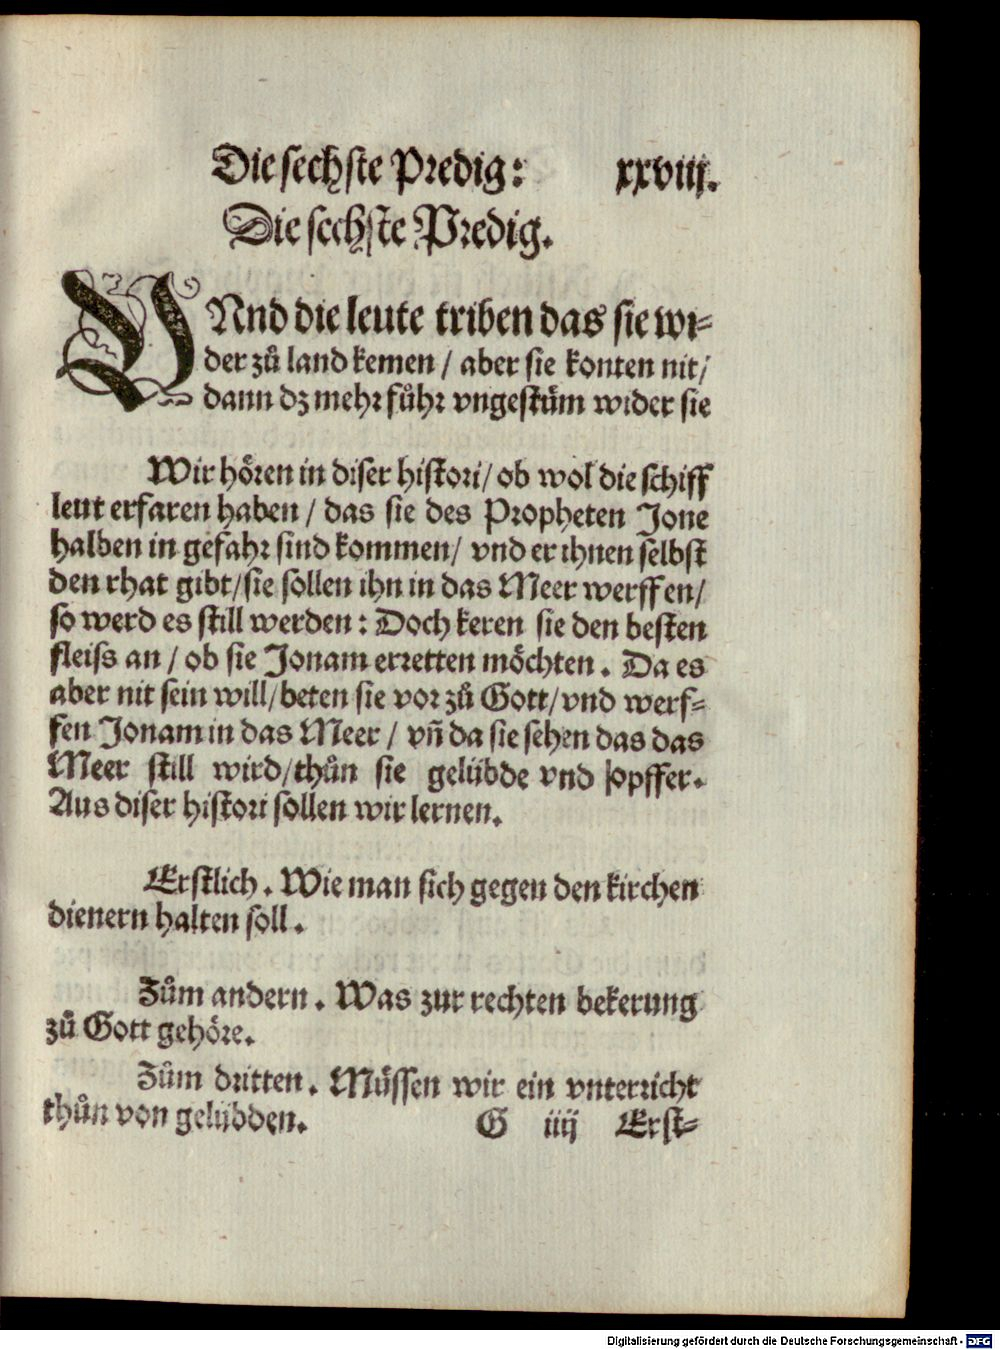 Die sechste Predig: xxviij.
Die sechste Predig.
VNnd die leute triben das sie wi⸗
der zů land kemen / aber sie konten nit/
dann dz mehr fůhr vngestům wider sie
Wir hören in diser histori/ ob wol die schiff
leut erfaren haben / das sie des Propheten Jone
halben in gefahr sind kommen/ vnd er ihnen selbst
den rhat gibt/sie sollen ihn in das Meer werffen/
so werd es still werden: Doch keren sie den besten
fleiss an / ob sie Jonam erretten möchten. Da es
aber nit sein will/beten sie vor zů Gott/vnd werf⸗
fen Jonam in das Meer / vñ da sie sehen das das
Meer still wird/thůn sie gelübde vnd sopffer.
Aus diser histori sollen wir lernen.
Erstlich. Wie man sich gegen den kirchen
dienern halten soll.
Zům andern. Was zur rechten bekerung
zů Gott gehöre.
Zům dritten. Müssen wir ein vnterricht
thůn von gelübden. G iiij Erst⸗
Digitalisierung gefördert durch die Deutsche Forschungsgemeinschaft - DFG